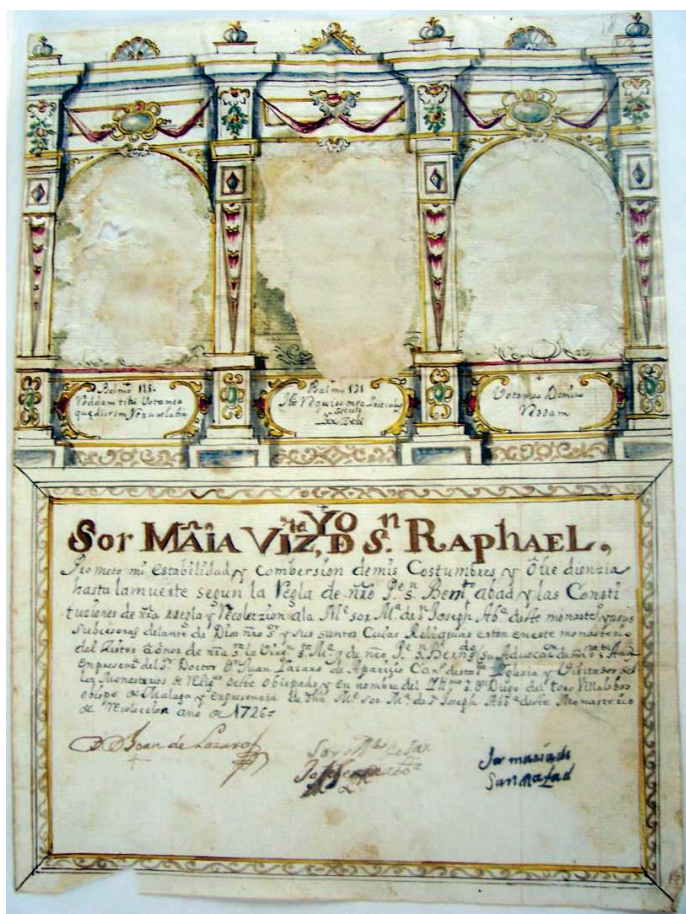 Psalmo 115.
Reddam tibi Vota mea
Psalmo 131
Hec Requies mea
Vota mea Domino
Reddam
YO
Sor MARIA VIZ.te D S.n RAPhAEL,
Prometo mi estabilidad y Combersion de mis Costumbres y Obe dienzia
hasta la muerte segun la Regla de nřo Pe. S. Ben.to abad y las Consti
tuziones de nřa Regla y Recolezzion a la M.e sor M.a de s.n Joseph Ab.a deste monast.o y a sus
Subcesoras delante de Dios nřo S.r y sus santos Cuias Reliquias estan en este monasterio
del Zistel a onor de nřa S.ra la Virg.n S.ta M.a y de nřo P.e S. Bern.do su Advocaz.on
En presenz.a del S.r Doctor D.n Juan Lazaro de Aparizio Can.o de sta S.ta Iglesia y Visitador de
los Monasterios de Relig.as deste obispado y en nombre del Ill.mo S.or D.n Diego del toro Villalobos
obispo de Malaga y en presenzia de dha M.e sor M.a de s.n Joseph Abb.a deste Monasterio
de Recolezion año de 1726=
D. D. Joan de Lazaro
Sor M.a de San
Joseph
Sor maria de
San Rafael